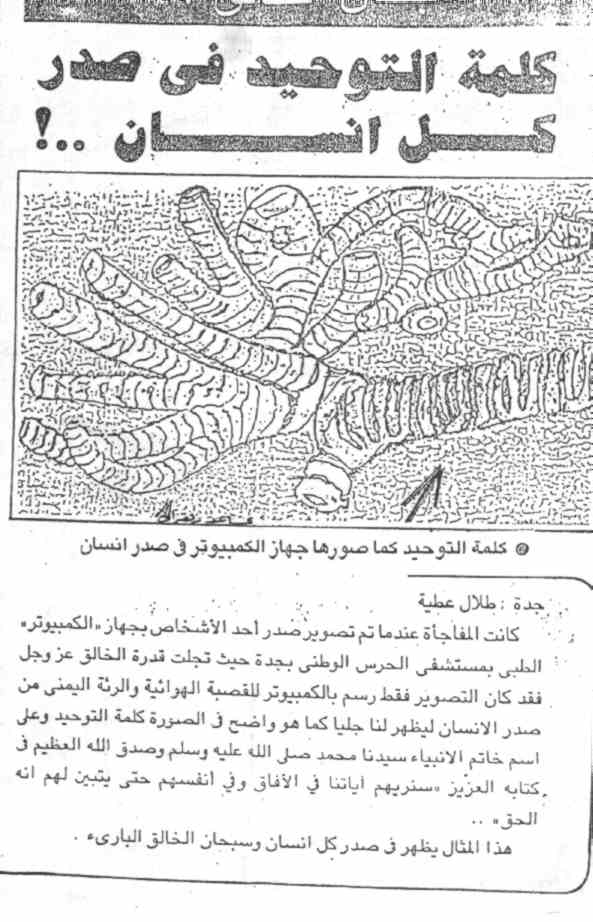 كلمة التوحيد فى صدر
كل انسان ..!
كلمة التوحيد كما صورها جهاز الكمبيوتر فى صدر انسان
جدة : طلال عطية
كانت المفاجأة عندما تم تصوير صدر أحد الأشخاص بجهاز «الكمبيوتر»
الطبى بمستشفى الحرس الوطنى بجدة حيث تجلت قدرة الخالق عز وجل
فقد كان التصوير فقط رسم بالكمبيوتر للقصبة الهوائية والرئة اليمنى من
صدر الانسان ليظهر لنا جليا كما هو واضح فى الصورة كلمة التوحيد وعلى
اسم خاتم الانبياء سيدنا محمد صلى الله عليه وسلم وصدق الله العظيم فى
كتابه العزيز «سنريهم آياتنا في الآفاق وفي أنفسهم حتى يتبين لهم انه
الحق» ..
هذا المثال يظهر فى صدر كل انسان وسبحان الخالق البارىء .